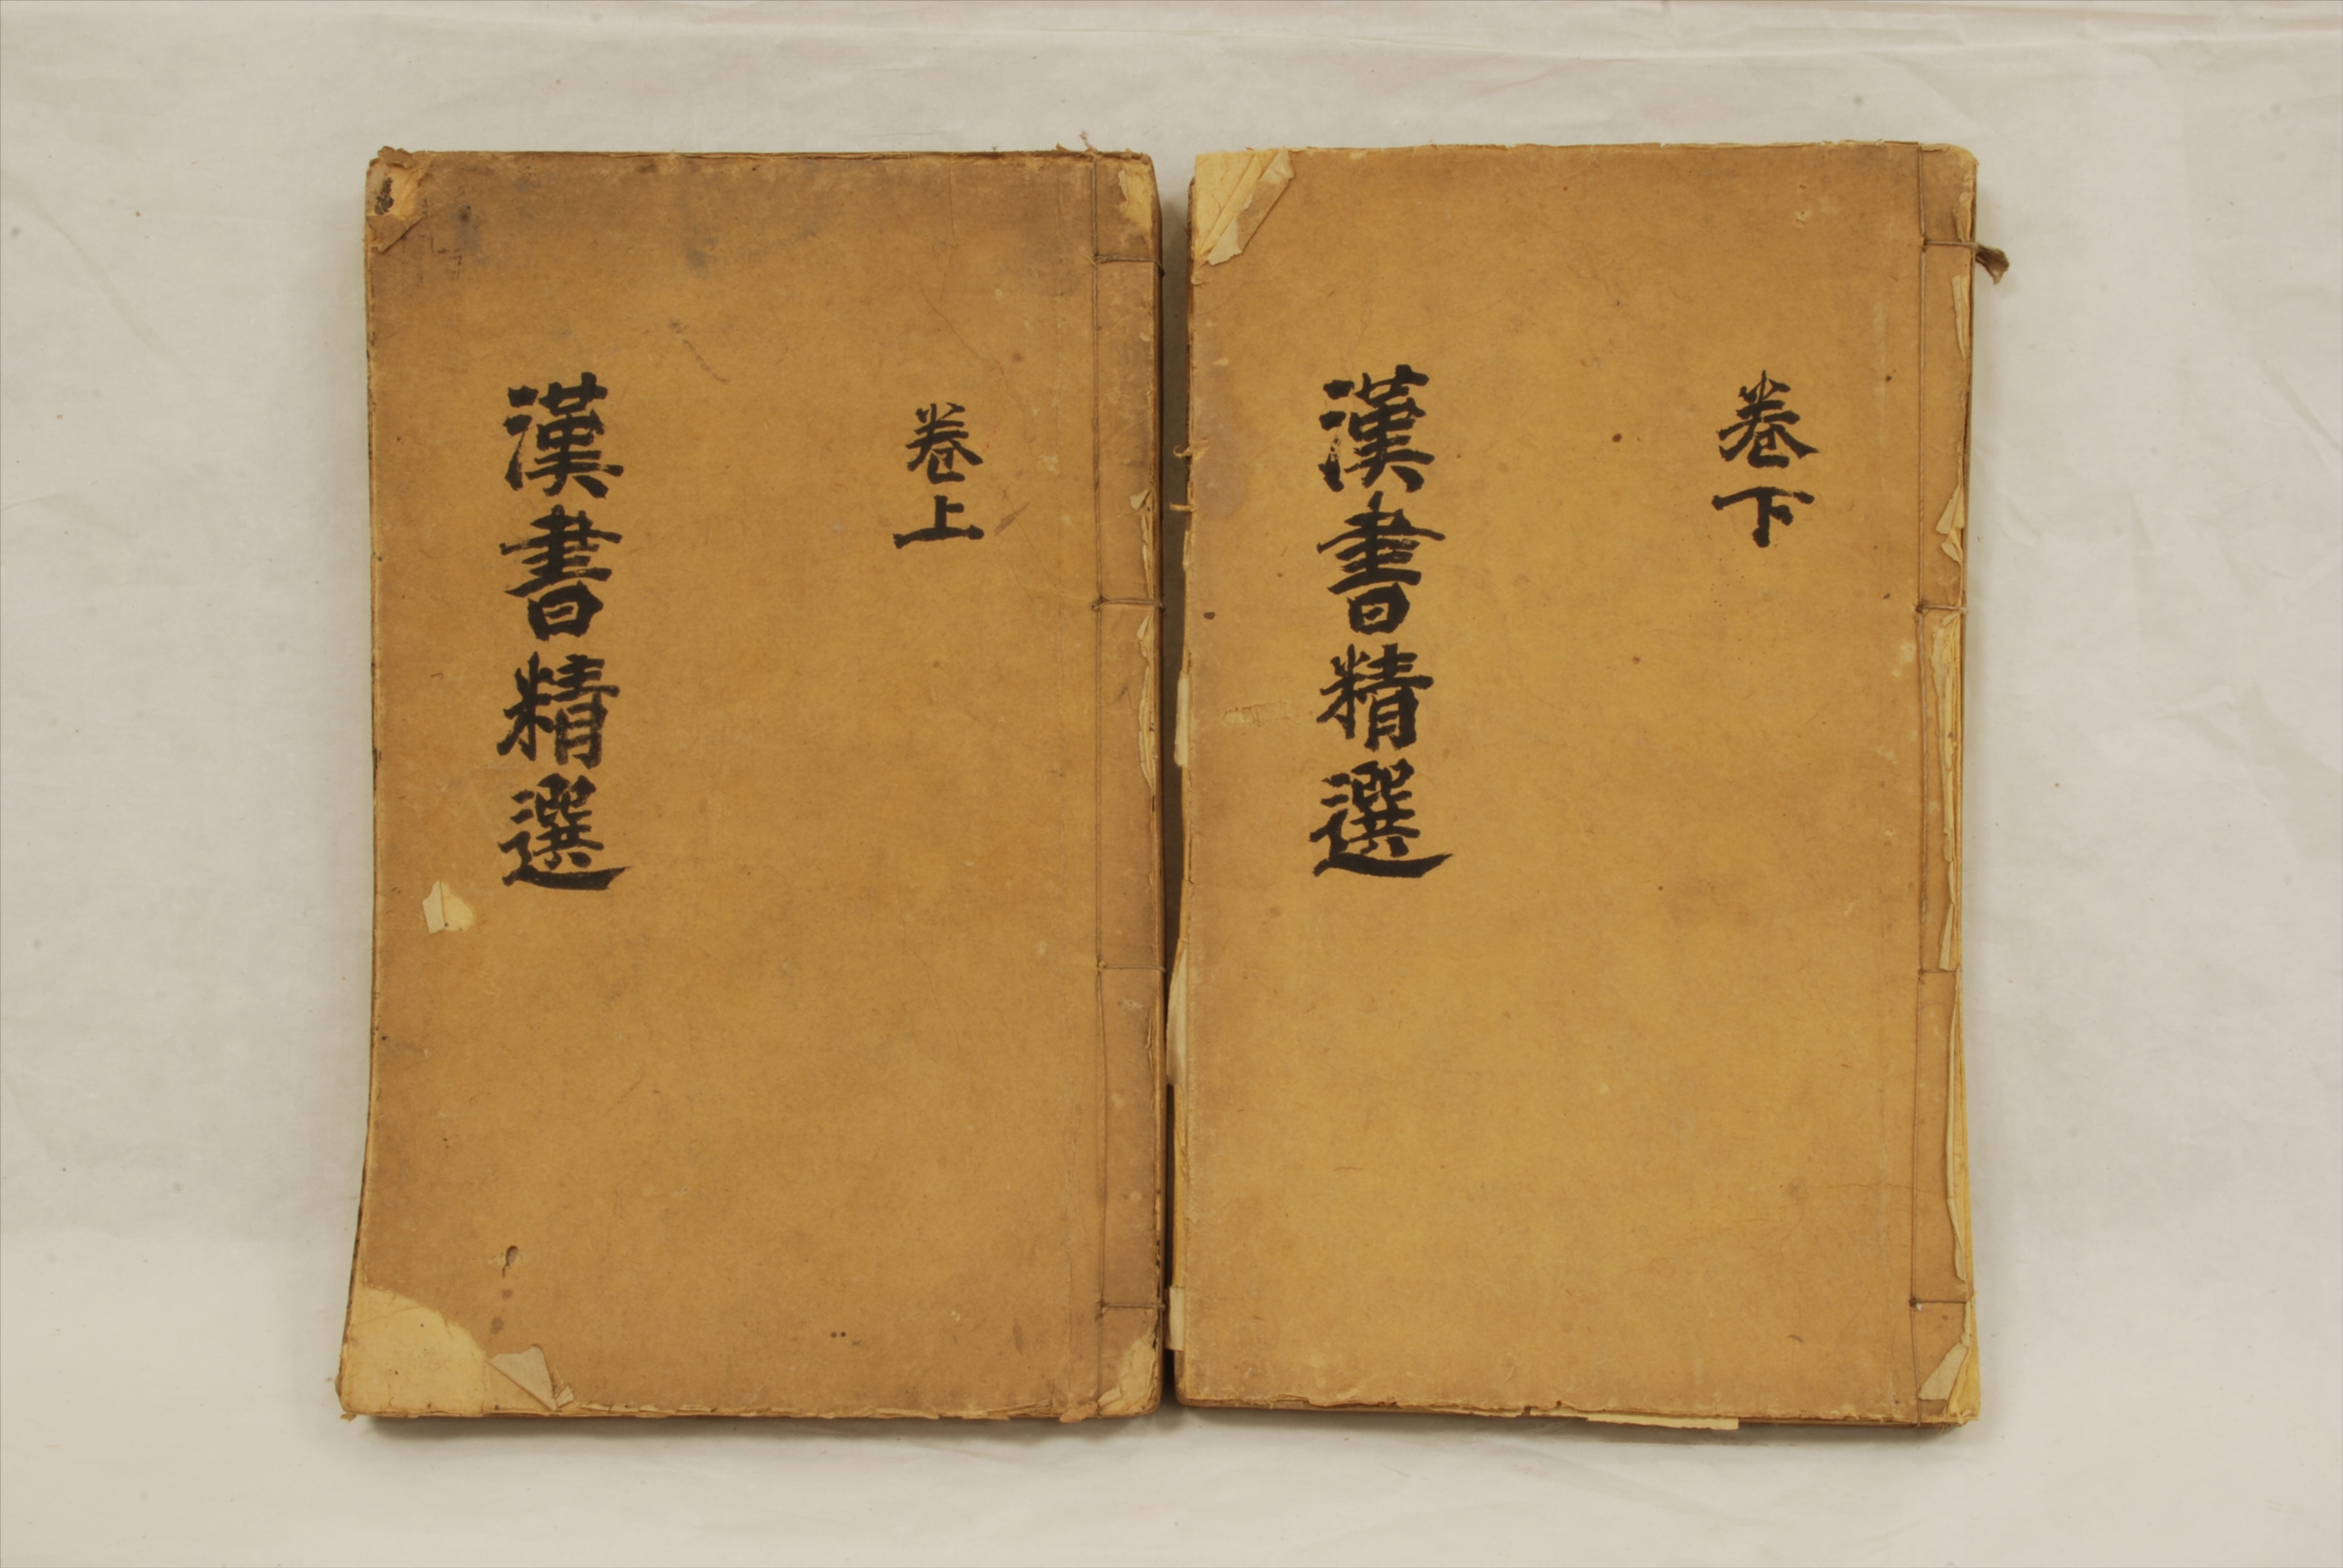 卷上
漢書精選
卷下
漢書精選